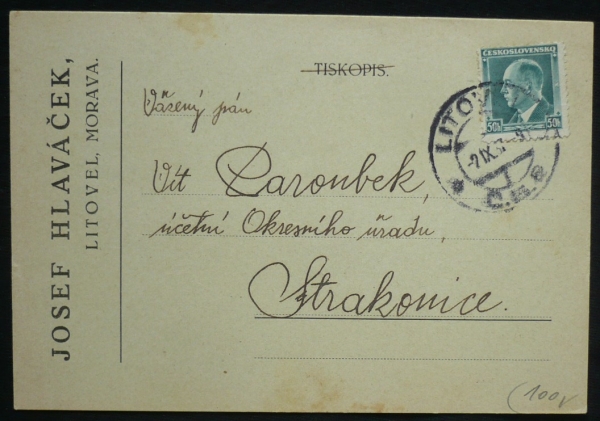 JOSEF HLAVÁČEK,
LITOVEL, MORAVA.
TISKOPIS.
ČESKOSLOVENSKO
50h 50h
LITOV
2 IX. 3
Č.S.
Vážený pán
Vít Paroubek,
účetní Okresního úřadu,
Strakonice.
100